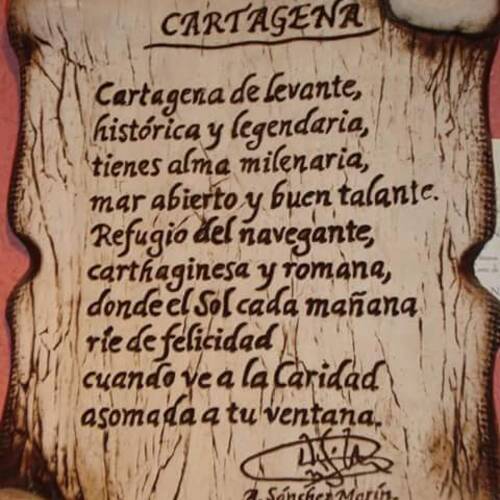 CARTAGENA
Cartagena de Levante,
histórica y legendaria,
tienes alma milenaria,
mar abierto y buen talante.
Refugio del navegante,
carthaginesa y romana,
donde el Sol cada mañana
ríe de felicidad
cuando ve a la Caridad
asomada a tu ventana.
A. Sánchez Marín